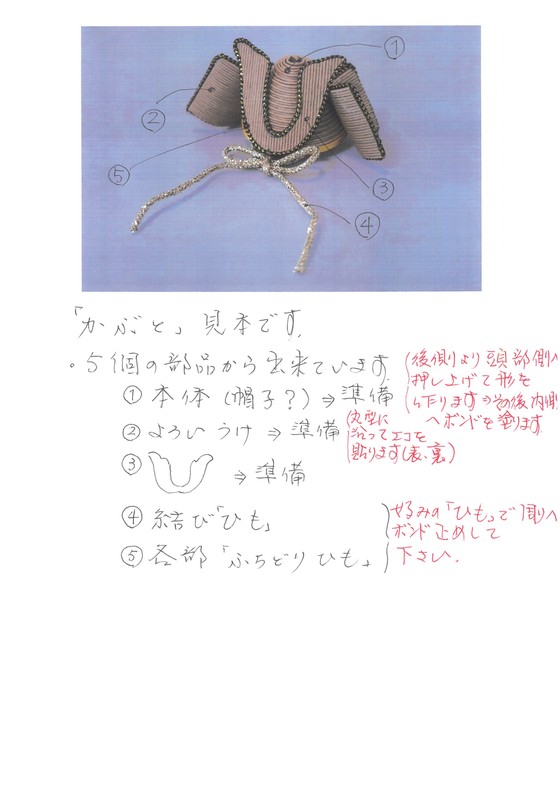 ①
②
⑤
③
④
「かぶと」見本です.
・5個の部品から出来ています.
(後側より頭部側へ
押し上げて形を
作ります⇒その後内側
へボンドを塗ります
① 本体 (帽子?) ⇒ 準備
② よろい うけ ⇒ 準備
(丸型に
沿ってエコを
貼ります(表、裏)
③ ⇒ 準備
④ 結び「ひも」
⑤ 各部「ふちどりひも」
好みの「ひも」で
ボンド止めして
下さい.